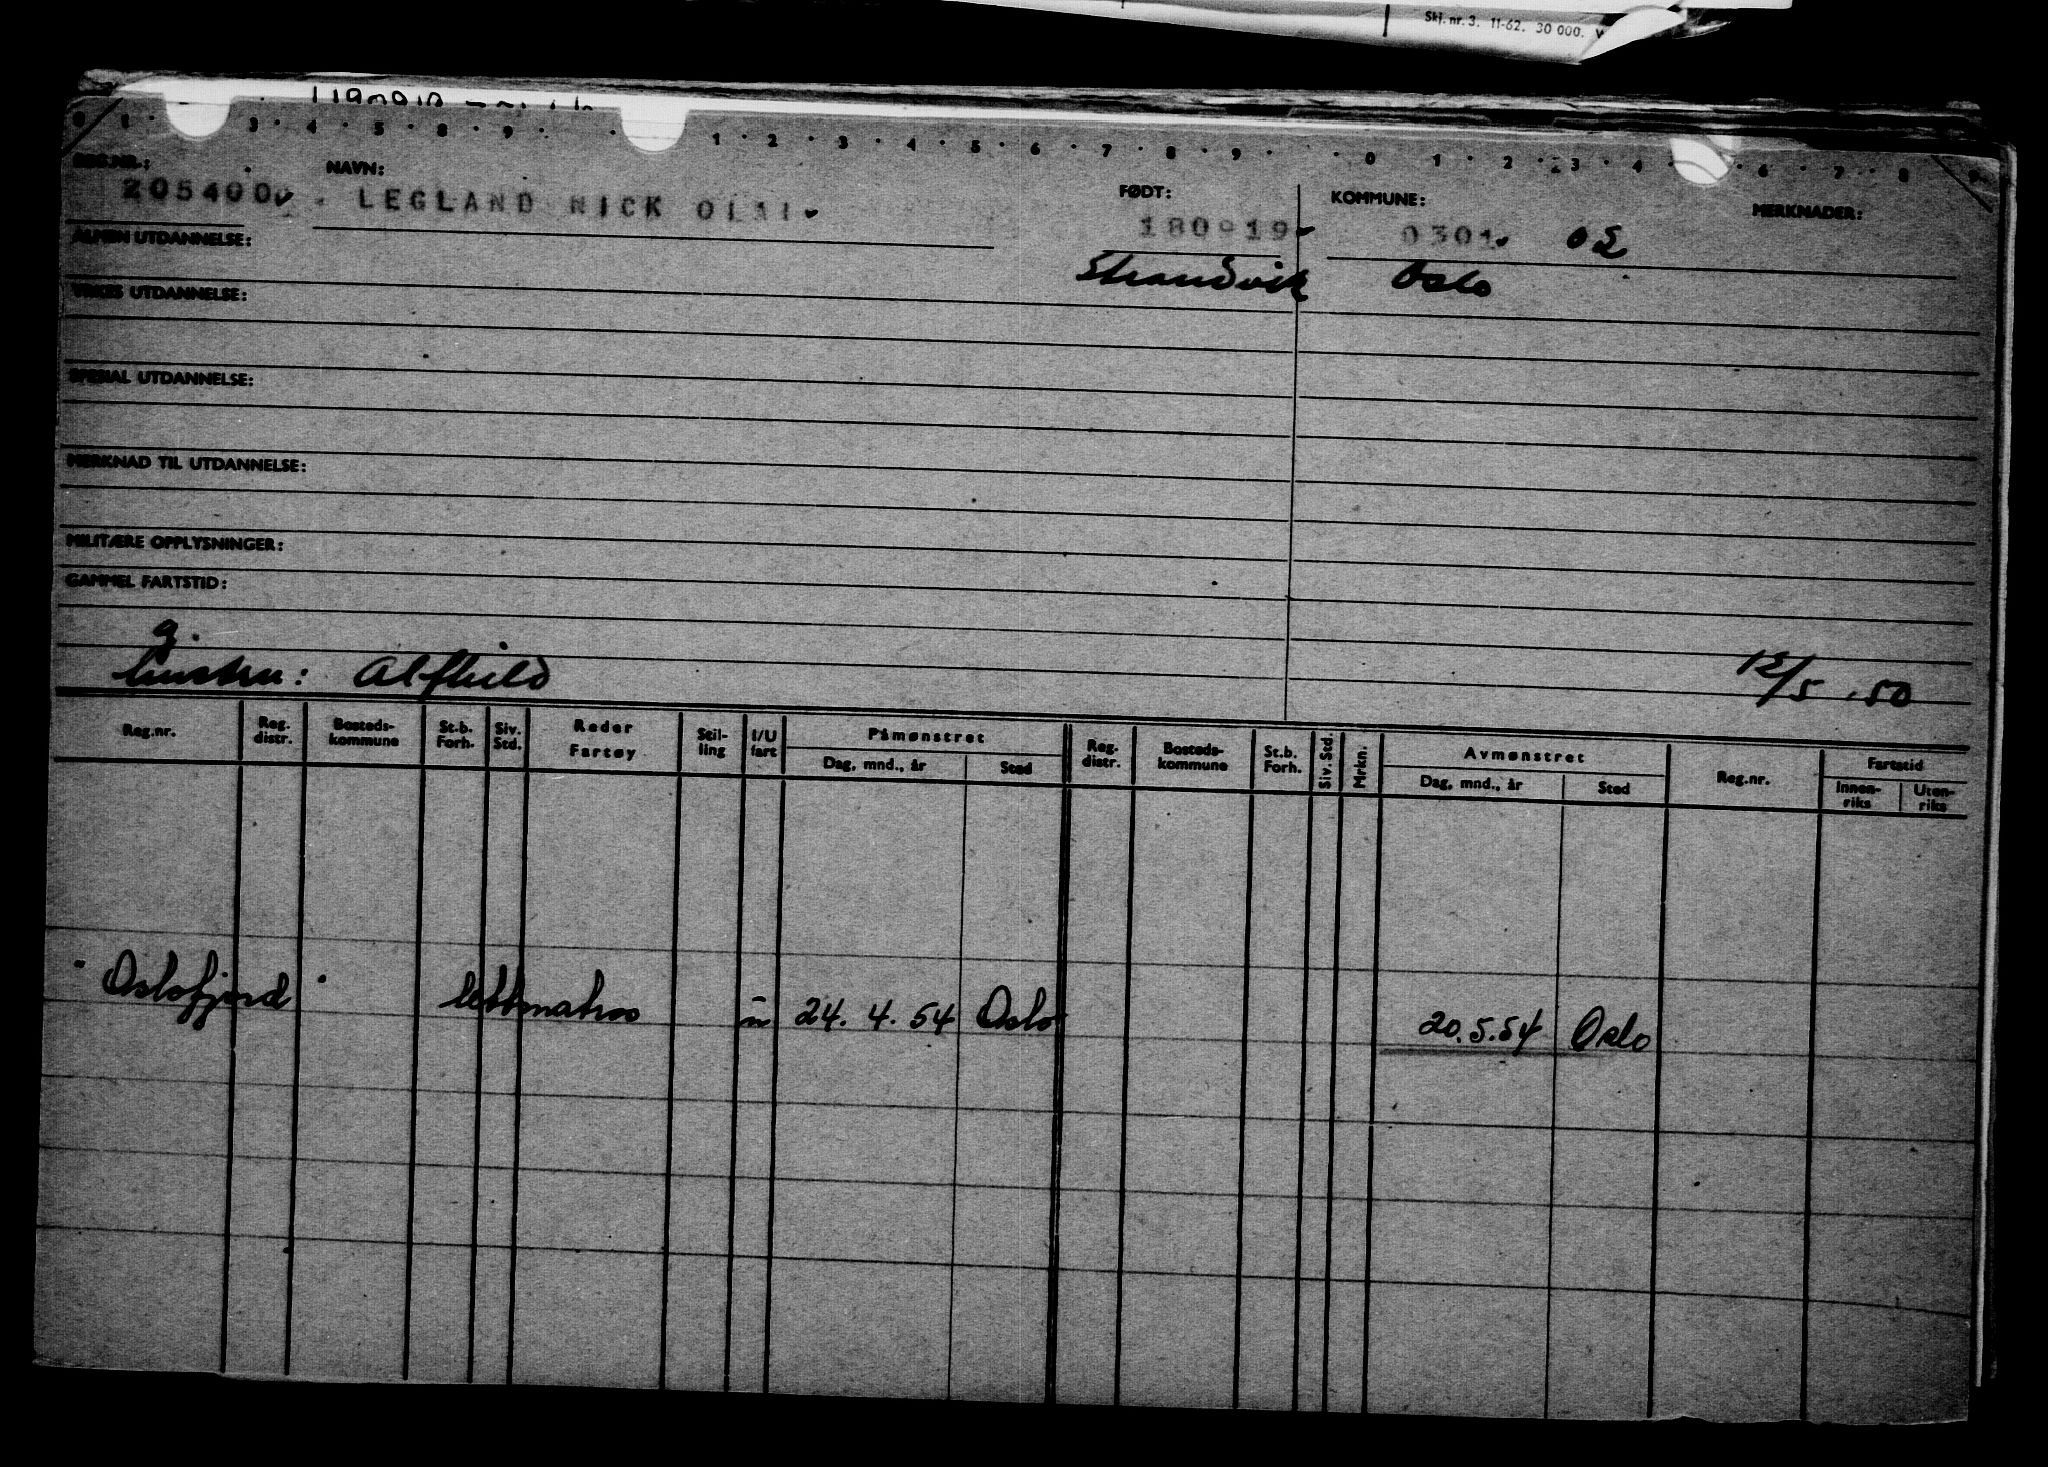 Skj. nr. 3. 11-62. 30 000.
0 1 . 3 . 4 . 5 . 8 . 9 . . 1 . 2 . 3 . 4 . 5 . 6 . 7 . 8 . 9 . . 0 1 . 2 . 3 . 4 . 6 . 7 . 8 9
REG.NR.: NAVN: FØDT: KOMMUNE: MERKNADER:
205400 LEGLAND NICK OLAI 180919 0301 OE
ALMEN UTDANNELSE: Strandvik Oslo
YRKES UTDANNELSE:
SPESIAL UTDANNELSE:
MERKNAD TIL UTDANNELSE:
MILITÆRE OPPLYSNINGER:
GAMMEL FARTSTID:
g.
hustru: Alfhild 12/5 . 50
Reg.nr. Reg. distr. Bosteds-kommune St.b. Forh. Siv. Std. Reder Fartøy Stil-ling I/U fart Påmønstret Dag, mnd., år Sted Reg. distr. Bosteds-kommune St.b. Forh. Siv. Std. Mrkn. Avmønstret Dag, mnd., år Sted Reg.nr. Fartstid Innen-riks Uten-riks
"Oslofjord" lettmatros 24. 4. 54 Oslo 20.5.54 Oslo